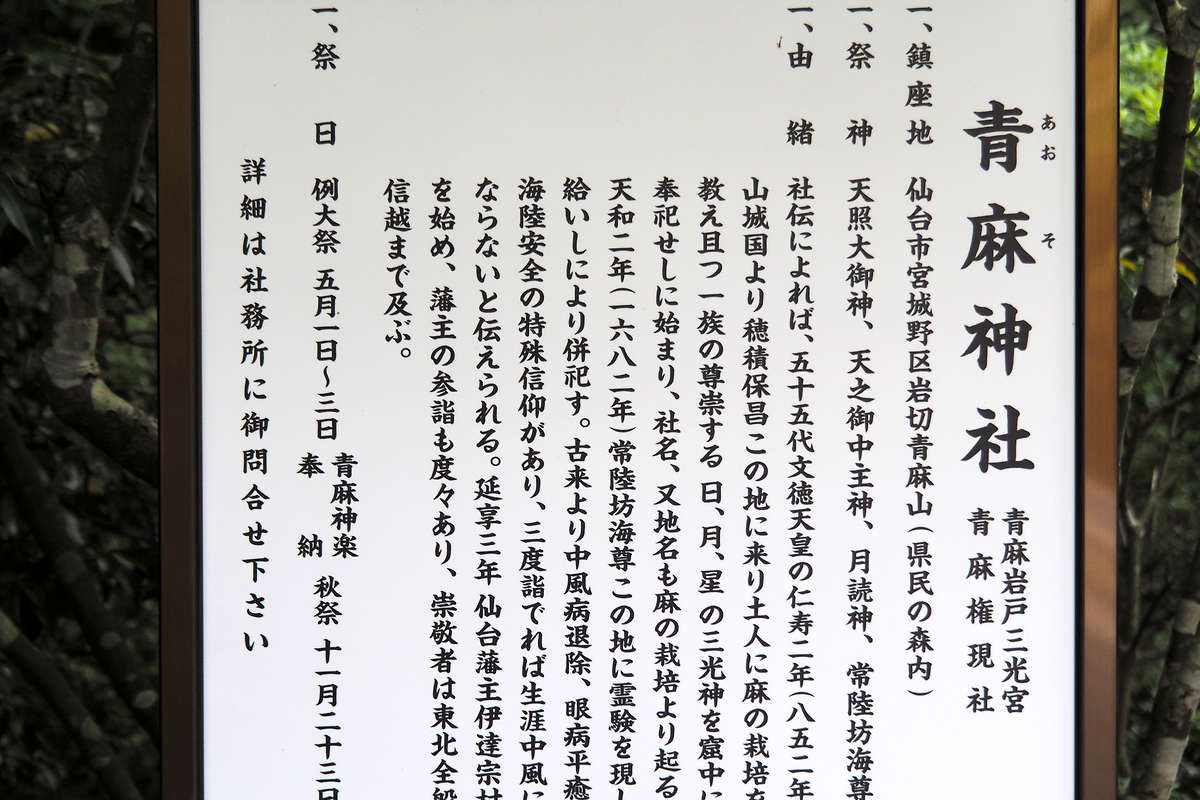 あおそ
青麻神社
青麻岩戸三光宮
青麻権現社
一、鎮座地 仙台市宮城野区岩切青麻山(県民の森内)
一、祭神 天照大御神、天之御中主神、月読神、常陸坊海尊
一、由緒 社伝によれば、五十五代文徳天皇の仁寿二年(八五二年
山城国より穂積保昌この地に来り土人に麻の栽培を
教え且つ一族の尊崇する日、月、星の三光神を窟中に
奉祀せしに始まり、社名、又地名も麻の栽培より起る
天和二年(一六八二年)常陸坊海尊この地に霊験を現し
給いしにより併祀す。古来より中風病退除、眼病平癒
海陸安全の特殊信仰があり、三度詣でれば生涯中風に
ならないと伝えられる。延享三年仙台藩主伊達宗村
を始め、藩主の参詣も度々あり、崇敬者は東北全般
信越まで及ぶ。
一、祭日 例大祭 五月一日~三日 青麻神楽奉納 秋祭 十一月二十三日
詳細は社務所に御問合せ下さい